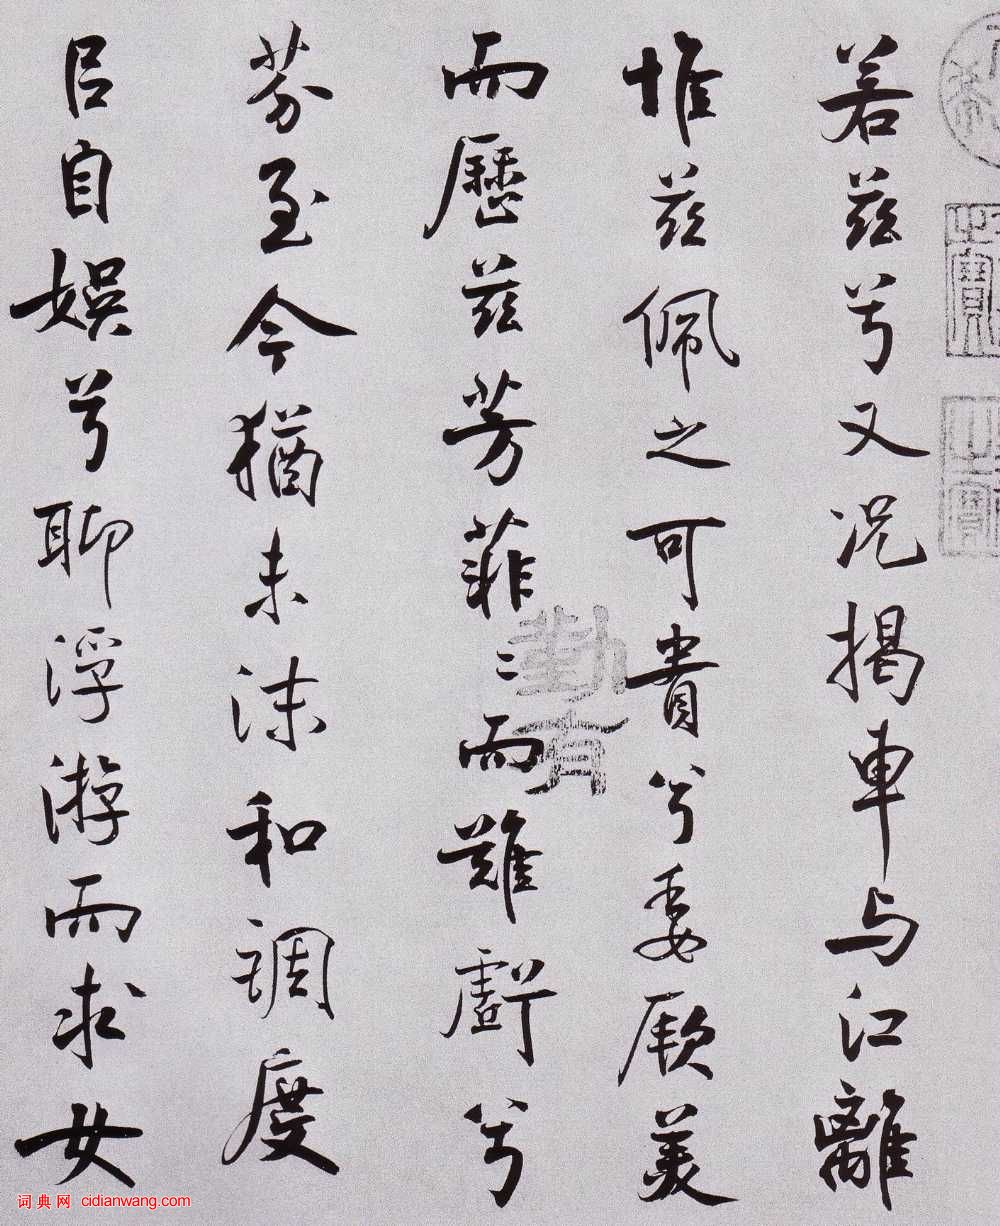 若兹兮又况揭車与江離
惟兹佩之可貴兮委厥美
而歷兹芳菲〻而難虧兮
芬至今猶未沬和調度
㠯自娱兮聊浮游而求女
勤有
之寶
词典网 cidianwang.com